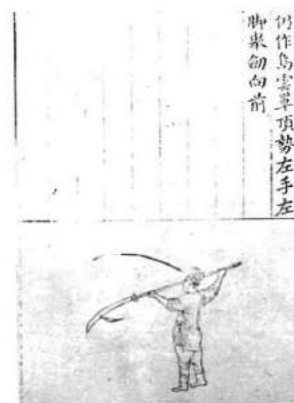 仍作烏雲罩頂勢左手左
脚㪯劒向前